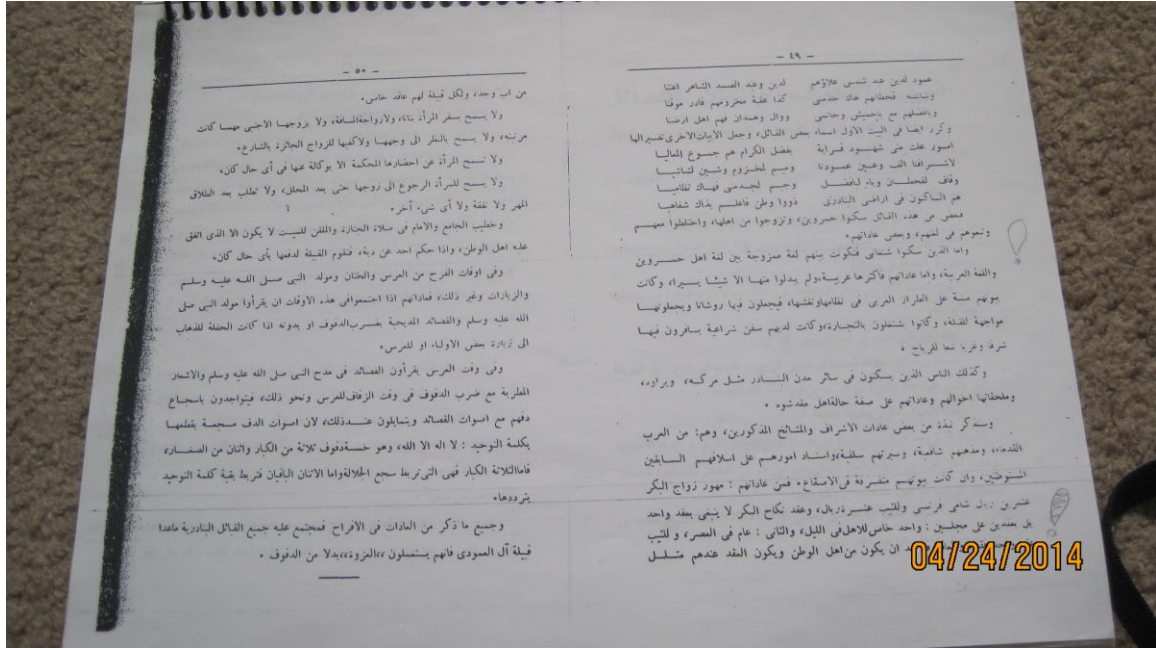 - ٤٩ -
عمود لدين عبد شمس علاؤهم لدين وعبد الصمد الشاهر
فحطانهم هاك كذا عقبة مخزومهم فادر موفنا
وبافضلهم مع وحاتمى ووال وهمدان فهم اهل ارضنا
وكرر ايضا فى البيت الأول اسماء بعض القبائل، وجعل الابيات الاخرى تفسيرالها
امور عك منى شهود قرابة بفضل الكرام هم جموع المعاليا
وعين عمودنا وميم لمخزوم وشين لشانيا
وقاف لقحطان وباء لبافضل وجيم لجدمنى فهاك نظاميا
هم الساكنون فى اراضى البنادرى ذووا وطن فاعلم بذاك شفاهيا
فبعض من هذه القبائل سكنوا حمروين، وتزوجوا من اهلها، واختلطوا معهم
وتبعوهم فى لغتهم، وبعض عاداتهم.
واما الذين سكنوا شنغانى فتكونت بينهم لغة ممزوجة بين لغة اهل حمروين
واللغة العربية، واما عاداتهم فأكثرها عربية،ولم يبدلوا منها الا شيئا يسيرا، وكانت
بيوتهم مبنية على الطراز العربى فى نظامهاونقشها، فيجعلون فيها روشانا ويجعلونها
مواجهة للقبلة، وكانوا يشتغلون بالتجارة،وكانت لديهم سفن شراعية يسافرون فيها
شرقا وغربا تبعا للرياح .
وكذلك الناس الذين يسكنون فى سائر مدن البنادر مثل مركه، وبراوه،
وملحقاتها احوالهم وعاداتهم على صفة حالةاهل مقدشوه .
وسنذكر نبذة من بعض عادات الاشراف والمشائخ المذكورين، وهم: من العرب
القدماء، ومذهبهم شافعية، وسيرتهم سلفية،واسناد امورهم على اسلافهم السابقين
المستوطنين، وان كانت بيوتهم متفرقة فى الاصقاع. فمن عاداتهم : مهور زواج البكر
عشرين ريال شامى فرنسى وللثيب عشرة ريال، وعقد نكاح البكر لا ينبغى بعقد واحد
بل بعقدين على مجلسين : واحد خاص للاهل فى الليل، والثانى : عام فى العصر، وللثيب
ان يكون من اهل الوطن ويكون العقد عندهم
- ٥٠ -
من اب وجد، ولكل قبيلة لهم عاقد خاص.
ولا يسمح بسفر المرأة بتاتا، ولازواجةالمسافة، ولا يزوجها الاجنبى مهما كانت
مرتبته، ولا يسمح بالنظر الى وجهها ولاكفيها للزواج الجائزة بالشارع.
ولا تسمح المرأة عن احضارها المحكمة الا بوكالة عنها فى أى حال كان.
ولا يسمح للمرأة الرجوع الى زوجها حتى بعد المحلل، ولا تطلب بعد الطلاق
المهر ولا نفقة ولا أى شىء آخر.
وخطيب الجامع والامام فى صلاة الجنازة والملقن للميت لا يكون الا الذى اتفق
عليه اهل الوطن، واذا حكم احد عن دية، فتقوم القبيلة لدفعها بأى حال كان.
وفى اوقات الفرح من العرس والختان ومولد النبى صلى الله عليه وسلم
والزيارات وغير ذلك، فعاداتهم اذا اجتمعوافى هذه الاوقات ان يقرأوا مولد النبى صلى
الله عليه وسلم والقصائد المديحية بضرب الدفوف او بدونه اذا كانت الحفلة للذهاب
الى زيارة بعض الاولياء او للعرس.
وفى وقت العرس يقرأون القصائد فى مدح النبى صلى الله عليه وسلم والاشعار
المطربة مع ضرب الدفوف فى وقت الزفاف للعرس ونحو ذلك، فيتواجدون باسجاع
دفهم مع اصوات القصائد ويتمايلون عند ذلك، لان اصوات الدف مسجعة بقطعها
بكلمة التوحيد : لا اله الا الله، وهو خمسةدفوف ثلاثة من الكبار واثنان من الصغار،
فاماالثلاثة الكبار فهى التى تربط سجع الجلالةواما الاثنان الباقيان فتربط بقية كلمة التوحيد
بترددها.
وجميع ما ذكر من العادات فى الافراح فمجتمع عليه جميع القبائل البنادرية ماعدا
قبيلة آل العمودى فانهم يستعملون ،،العزوة،،بدلا من الدفوف .
04/24/2014